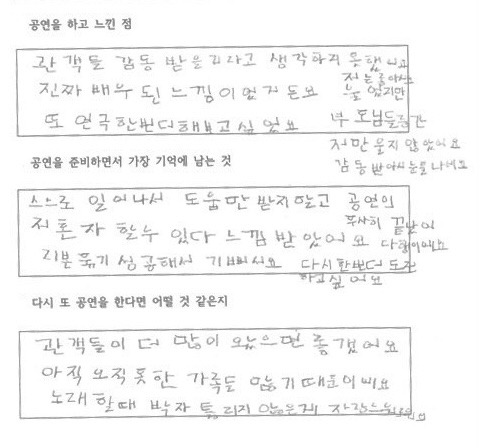 공연을 하고 느낀 점
관객들 감동 받을리라고 생각하지 못했
진짜 배우 된 느낌이었거든요
눈물 었지만
또 연극한번더해보고싶었요 부모님들
저만 울지 않았어요
감동 받아서 눈물 나네요
공연을 준비하면서 가장 기억에 남는 것
스스로 일어나서 도움만 받지말고 공연의
무사히 끝난이
저 혼자 할수 있다 느낌 받았어요 다행이에요
리본 묶기 성공해서 기뻐서요 다시 한번더 도전
하고 싶어요
다시 또 공연을 한다면 어떨 것 같은지
관객들이 더 많이 오났으면 좋겠어요
아직 오직못한 가족들 많기 때문이예요
노래 할때 박자 틀리지 않은게